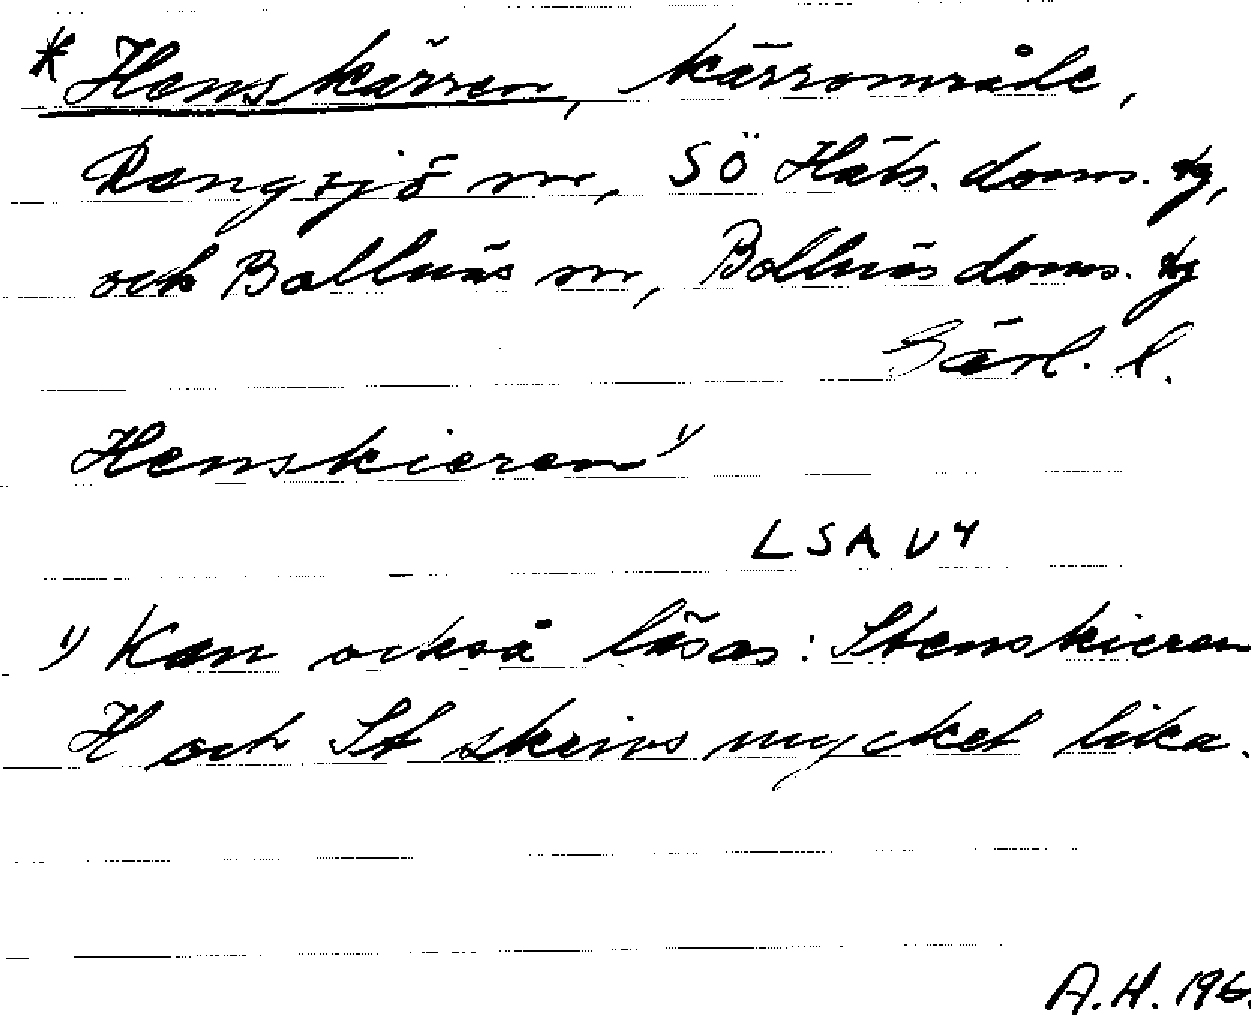 * Henskärren, kärrområde,
Rengsjö sn, SÖ Häls. doms. tg,
och Bollnäs sn, Bollnäs doms. tg
Gävl. l.
Henskieren 1)
LSA U4
1) Kan också läsas: Stenskieren
H och St skrivs mycket lika.
A.H. 196